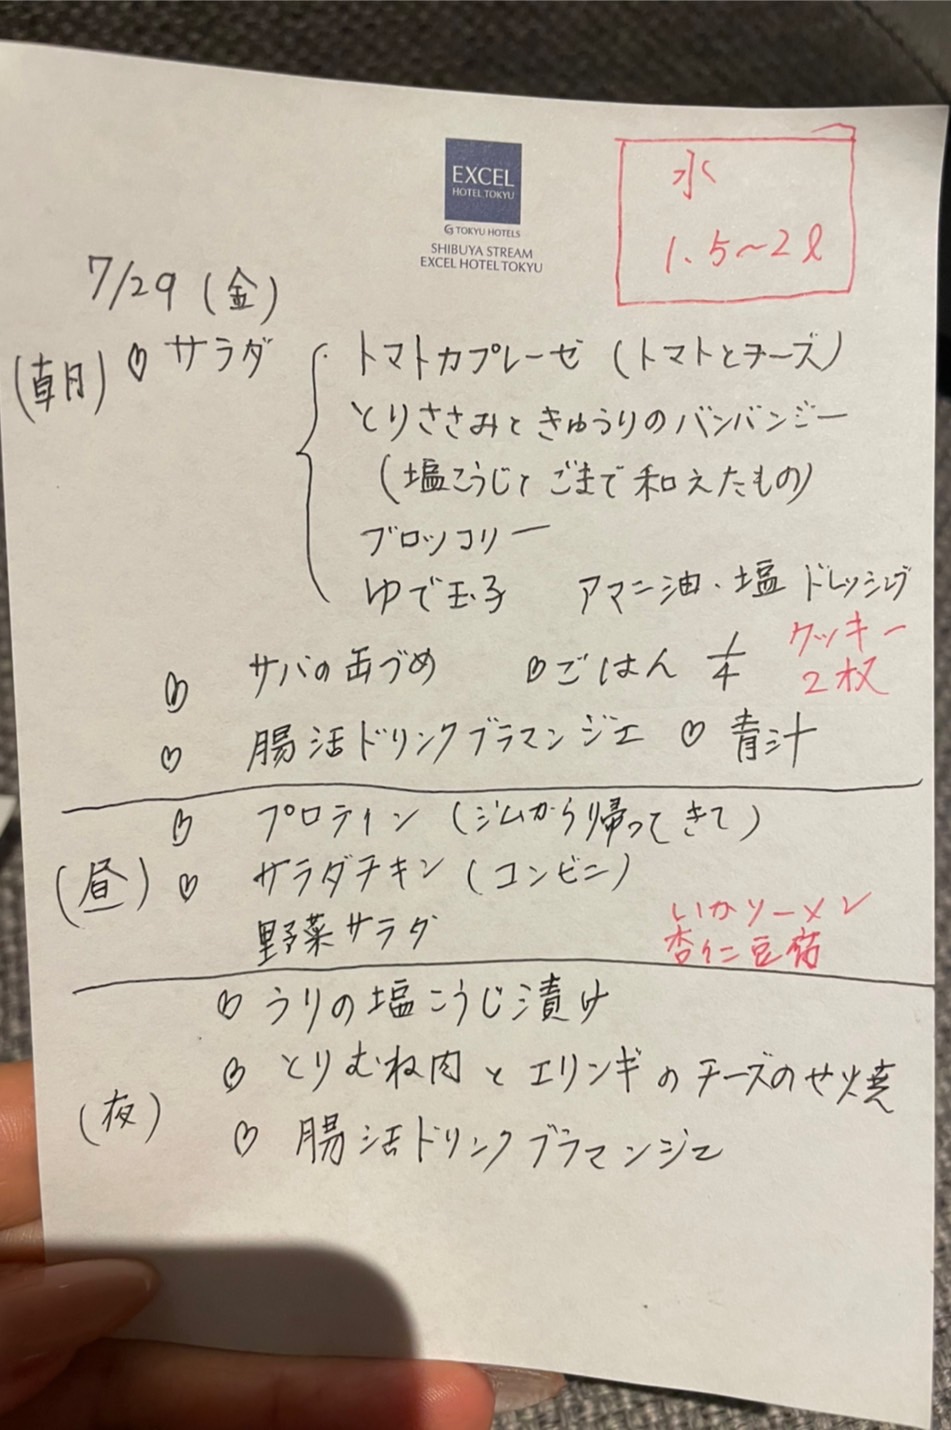 EXCEL
HOTEL TOKYU
TOKYU HOTELS
SHIBUYA STREAM
EXCEL HOTEL TOKYU
水
1.5〜2ℓ
7/29(金)
(朝) ♡ サラダ ・トマトカプレーゼ(トマトとチーズ)
とりささみときゅうりのバンバンジー
(塩こうじとごまで和えたもの)
ブロッコリー
ゆで玉子 アマニ油・塩 ドレッシング
♡ サバの缶づめ ♡ごはん 1/4 クッキー
2枚
♡ 腸活ドリンクブラマンジェ ♡ 青汁
♡ プロテイン(ジムから帰ってきて)
(昼) ♡ サラダチキン(コンビニ)
野菜サラダ いかソーメン
杏仁豆腐
♡ うりの塩こうじ漬け
♡ とりむね肉とエリンギのチーズのせ焼
(夜)
♡ 腸活ドリンクブラマンジェ